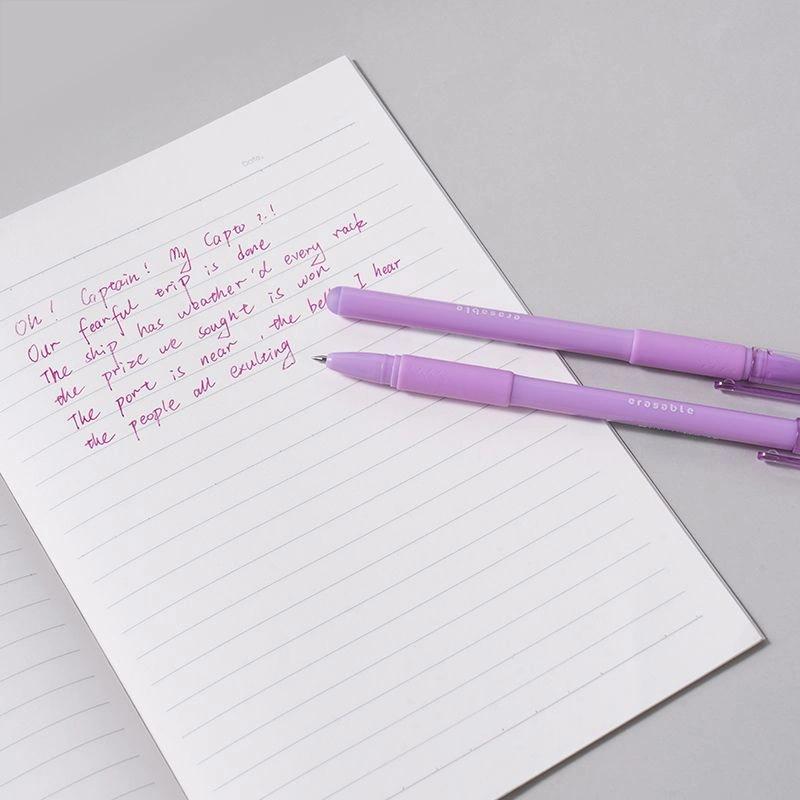 Date.
Oh! Captain! My Capta ?.!
Our fearful trip is done
The ship has weather'd every rack
the prize we sought is won
The port is near the bell I hear
the people all exulting
erasable
erasable